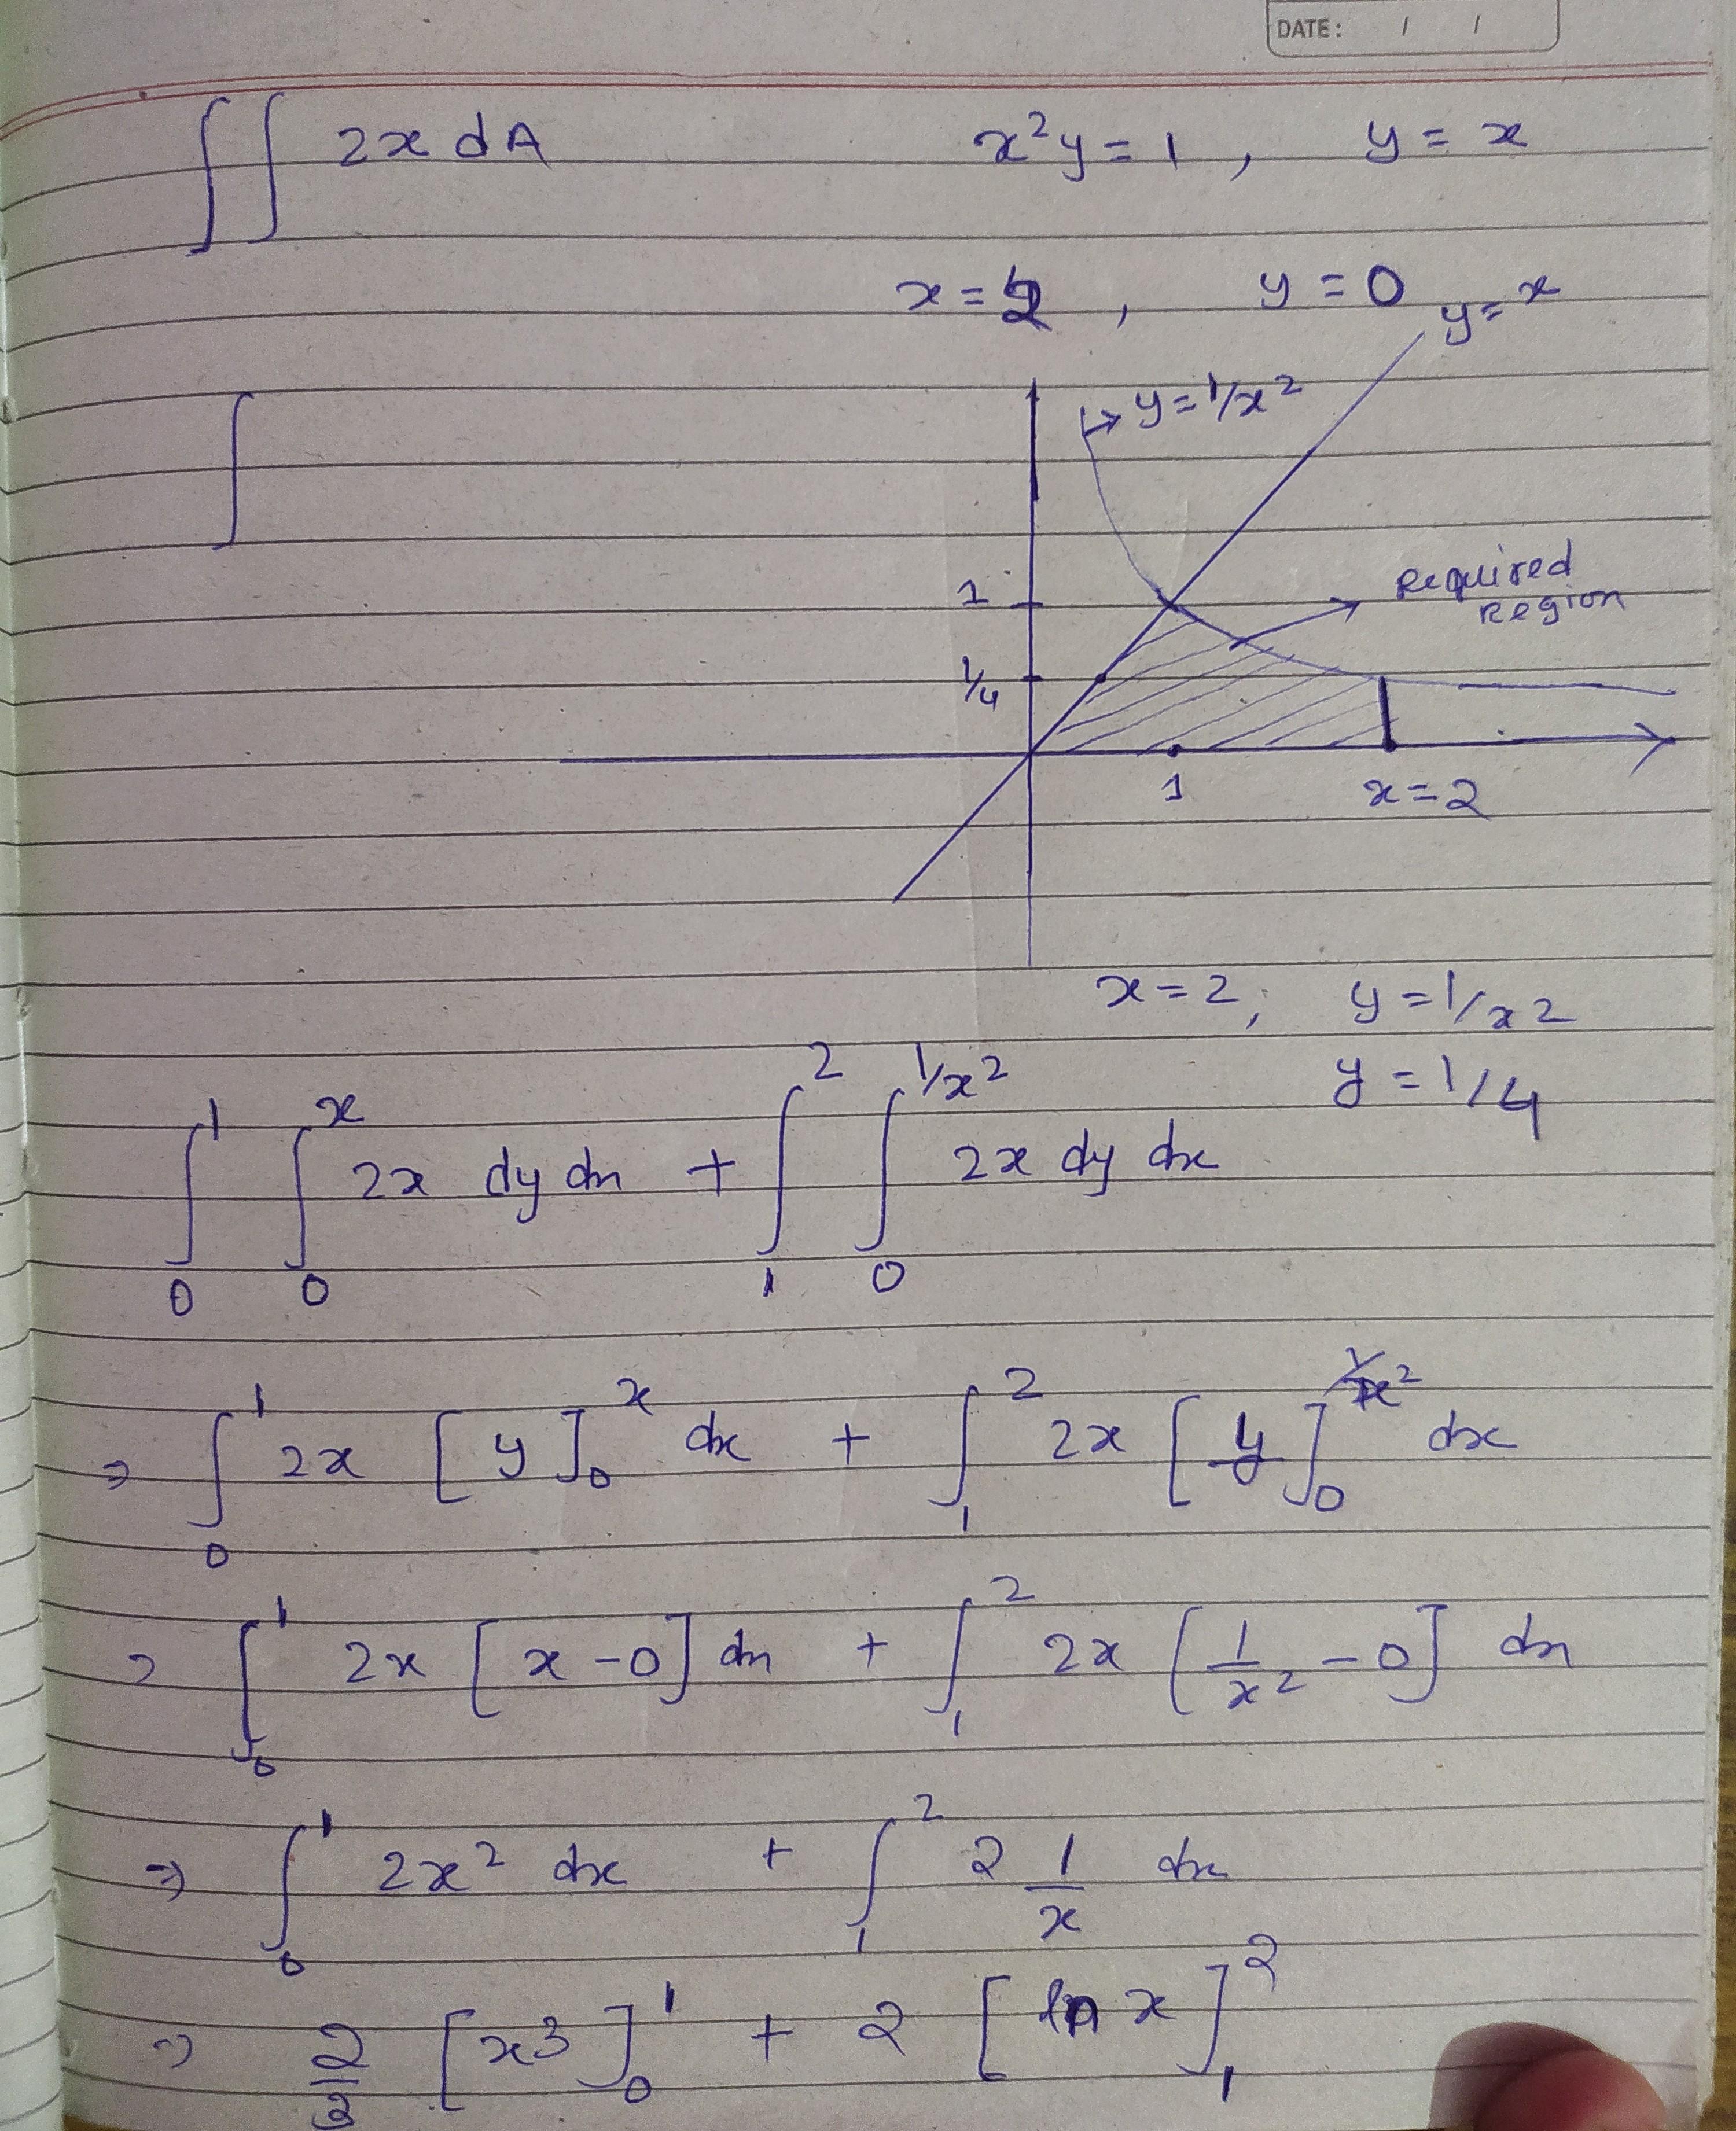 DATE: / /
∫∫ 2x dA x²y = 1 , y = x
x = 2 , y = 0
y = x
↦ y = 1/x²
∫
Required
Region
1
1/4
1 x = 2
x = 2, y = 1/x²
y = 1/4
∫₀¹ ∫₀ˣ 2x dy dx + ∫₁² ∫₀^(1/x²) 2x dy dx
⇒ ∫₀¹ 2x [y]₀ˣ dx + ∫₁² 2x [y]₀^(1/x²) dx
⇒ ∫₀¹ 2x [x - 0] dx + ∫₁² 2x [1/x² - 0] dx
⇒ ∫₀¹ 2x² dx + ∫₁² 2 1/x dx
⇒ 2/3 [x³]₀¹ + 2 [ln x]₁²